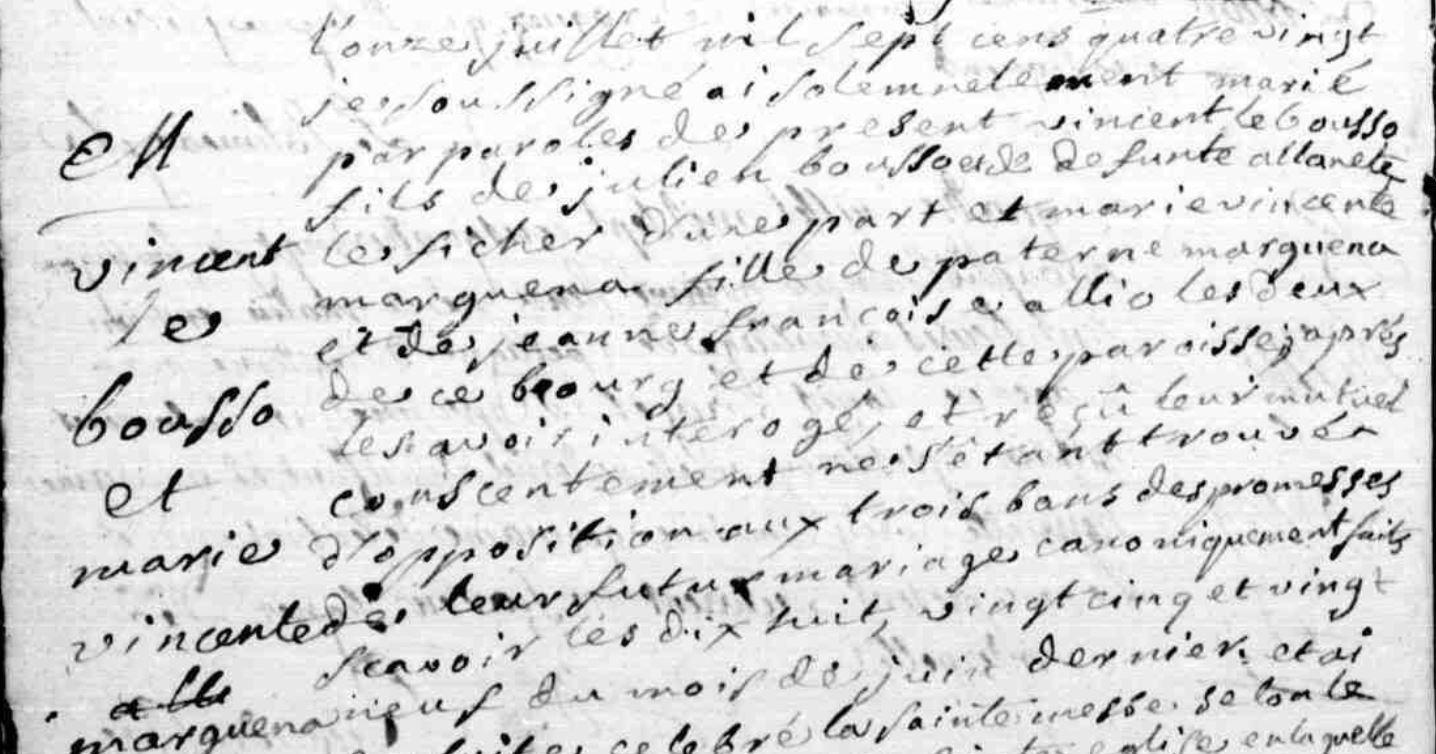 l'onze juillet mil sept cens quatre vingt
je soussigné ai solemnelement marié
par paroles de present vincent le bousso
fils de julien bousso et de defunte
le ficher d'une part et marie vincente
marguena fille de paterne marguena
et de jeanne françoise allio les deux
de ce bourg et de cette paroisse; après
les avoir interogé, et reçû leur mutuel
conscentement ne s'étant trouvée
d'opposition aux trois bans des promesses
de leur futur mariage canoniquement faits
scavoir les dix huit, vingt cinq et vingt
neuf du mois de juin dernier et ai
celebré la sainte messe selon le
eglise en laquelle
M
vincent
le
bousso
et
marie
vincente
marguena